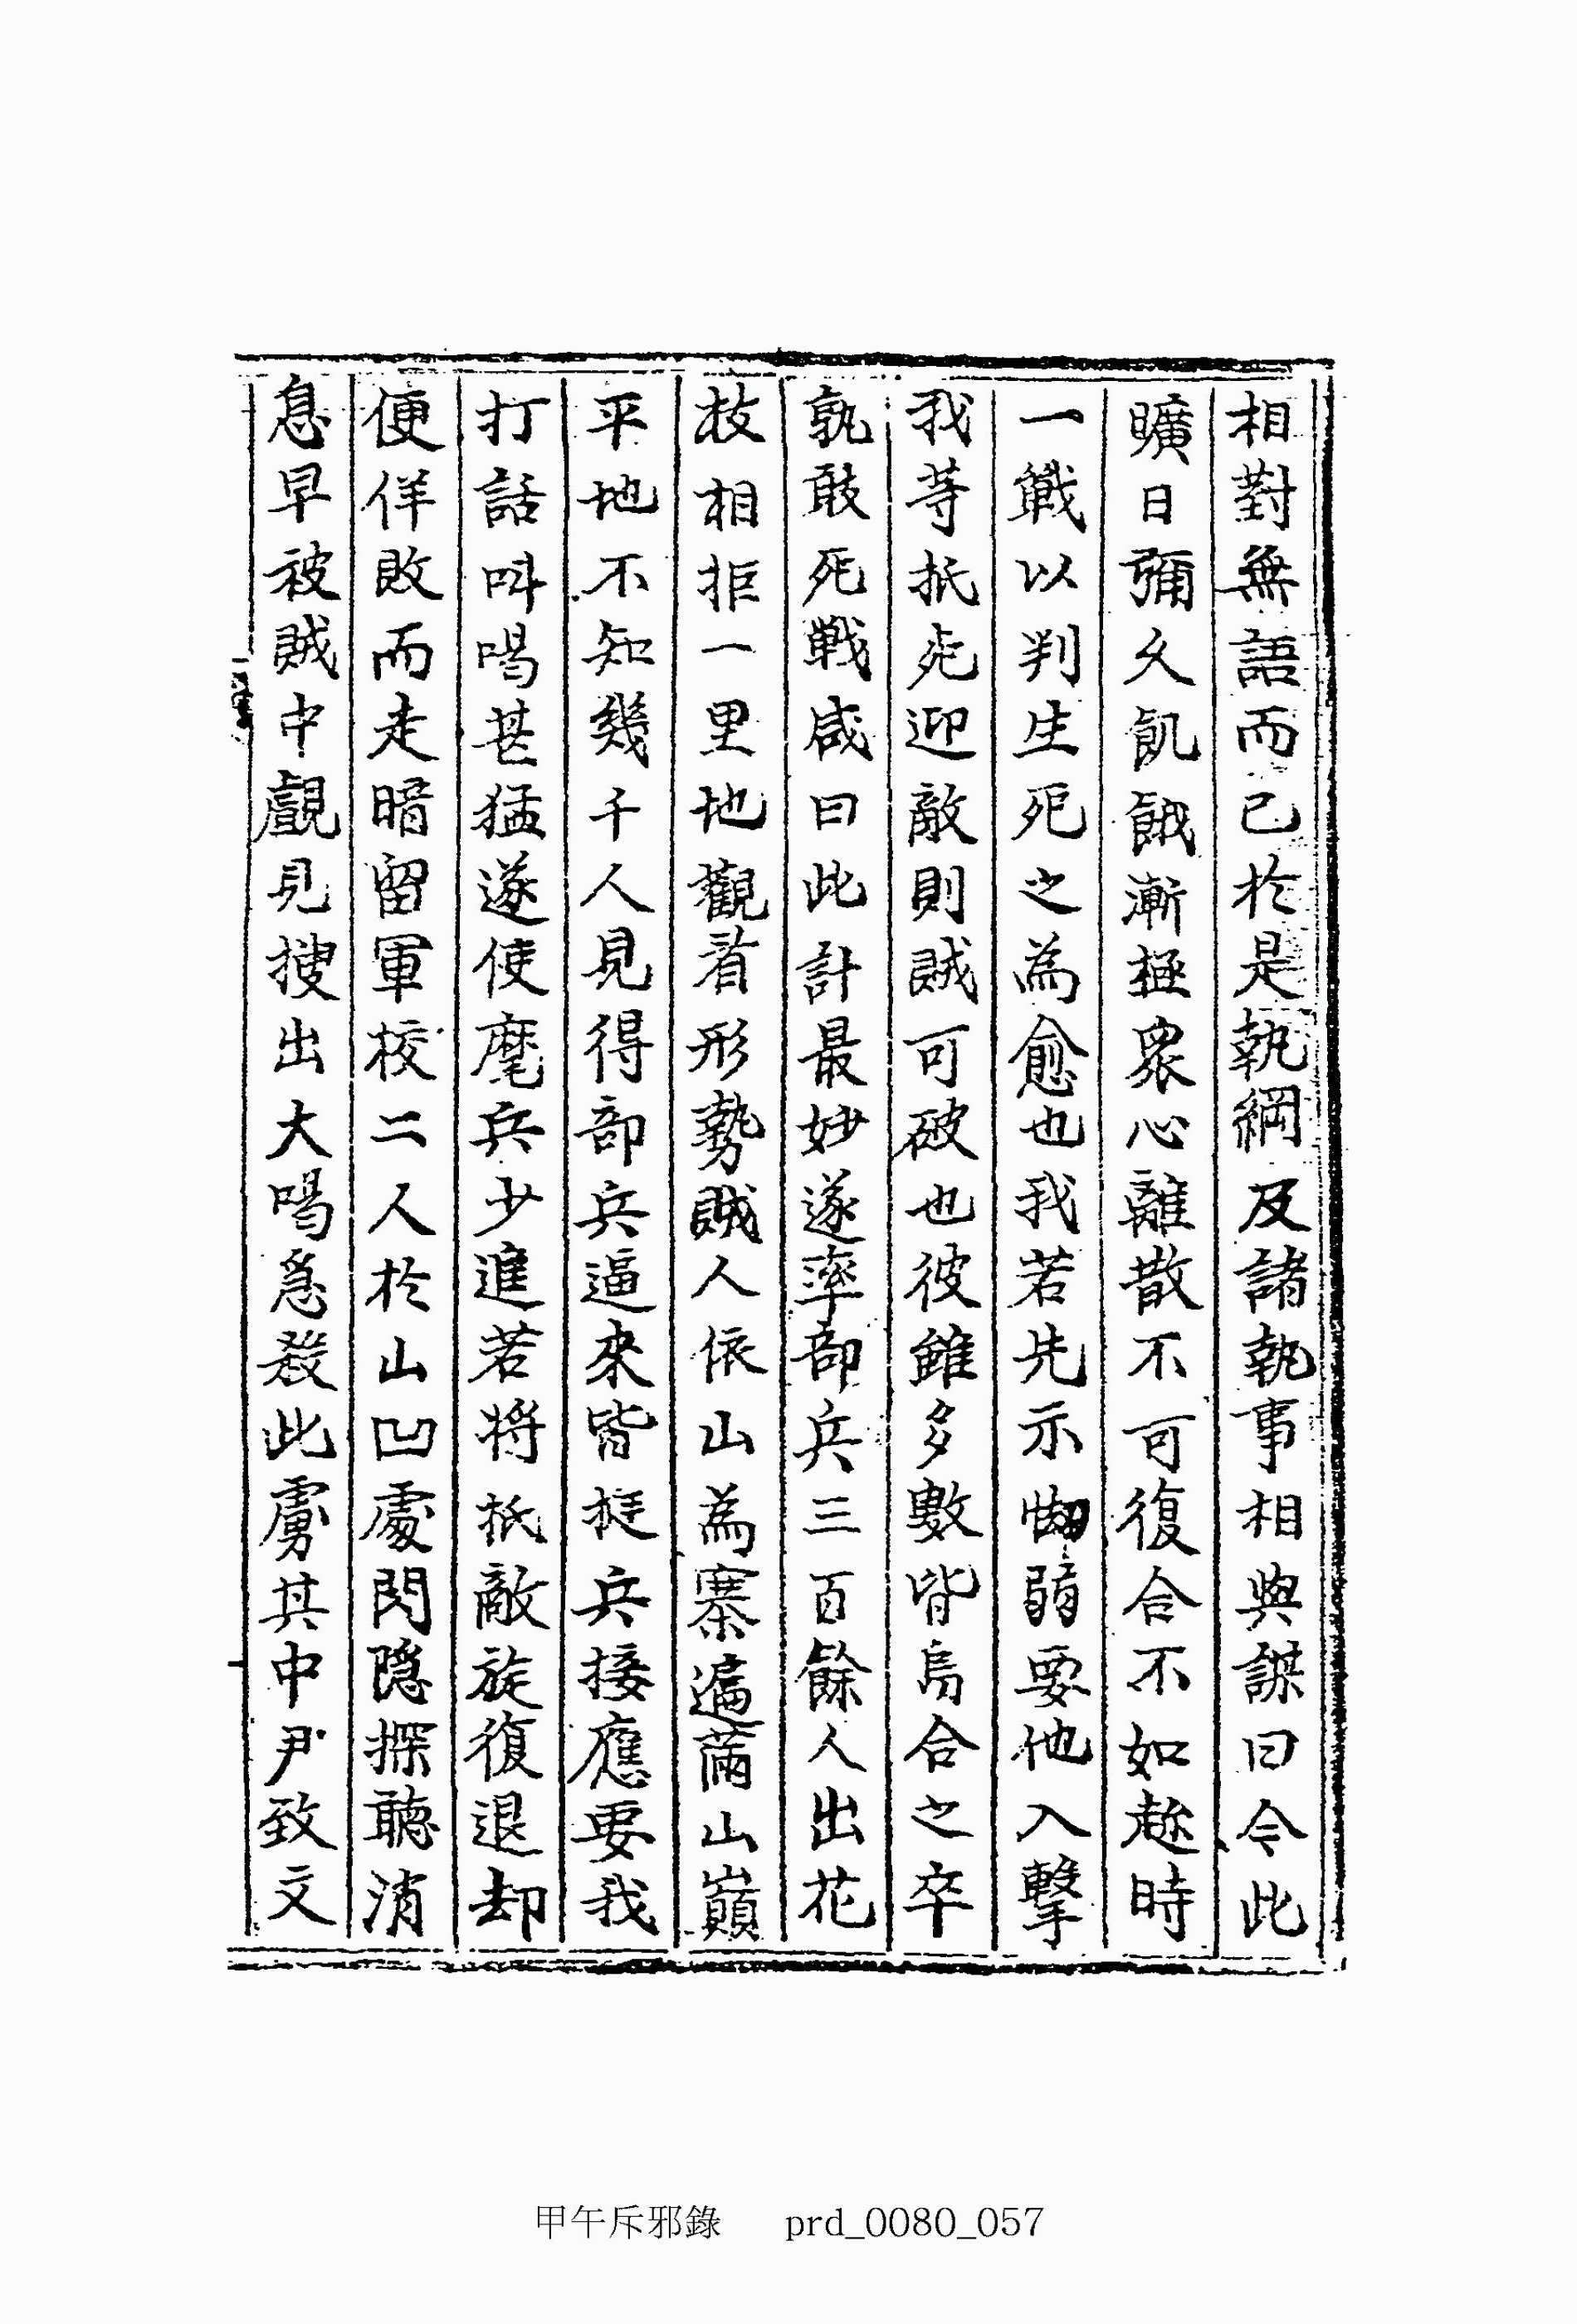 相對無語而已於是執綱及諸執事相與謀曰今此
曠日彌久飢餓漸極衆心離散不可復合不如趂時
一戰以判生死之為愈也我若先示㤼弱要他入擊
我等抵死迎敵則賊可破也彼雖多數皆烏合之卒
孰敢死戰咸曰此計最妙遂率部兵三百餘人出花
枝相拒一里地觀着形勢賊人依山為寨遍滿山巓
平地不知幾千人見得部兵逼來皆挺兵接應要我
打話叫喝甚猛遂使麾兵少進若將抵敵旋復退却
便佯敗而走暗留軍校二人於山凹處閃隱探聽消
息早被賊中覰見搜出大喝急殺此虜其中尹致文
甲午斥邪錄 prd_0080_057